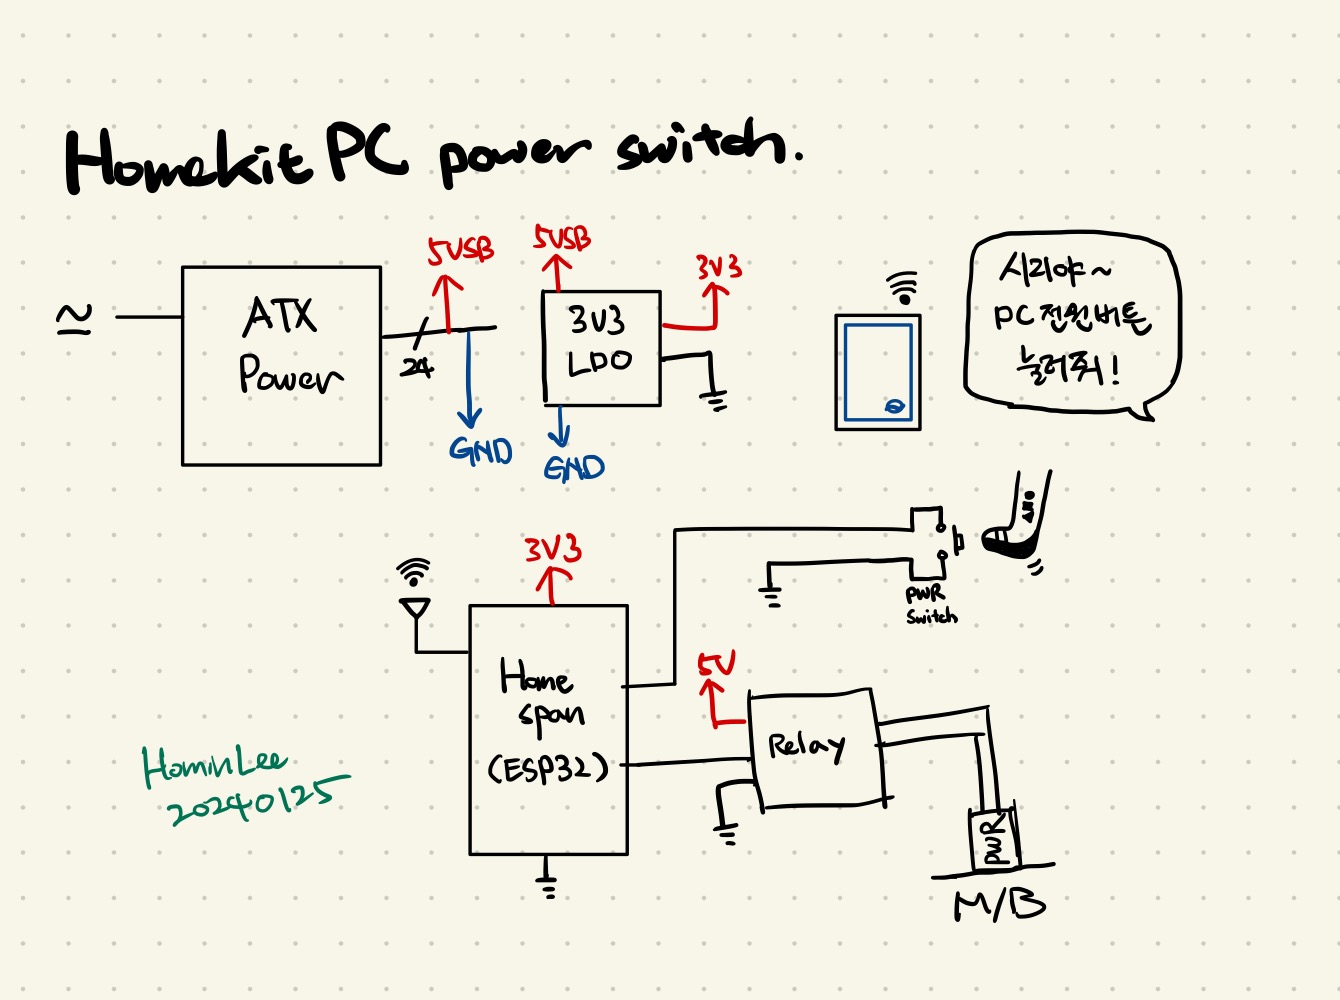 Homekit PC power switch.
ATX
Power
24
5VSB
GND
5VSB
3V3
LDO
GND
3V3
시리야~
PC 전원버튼
눌러줘!
PWR
Switch
3V3
Home
span
(ESP32)
5V
Relay
PWR
M/B
HominLee
20240125